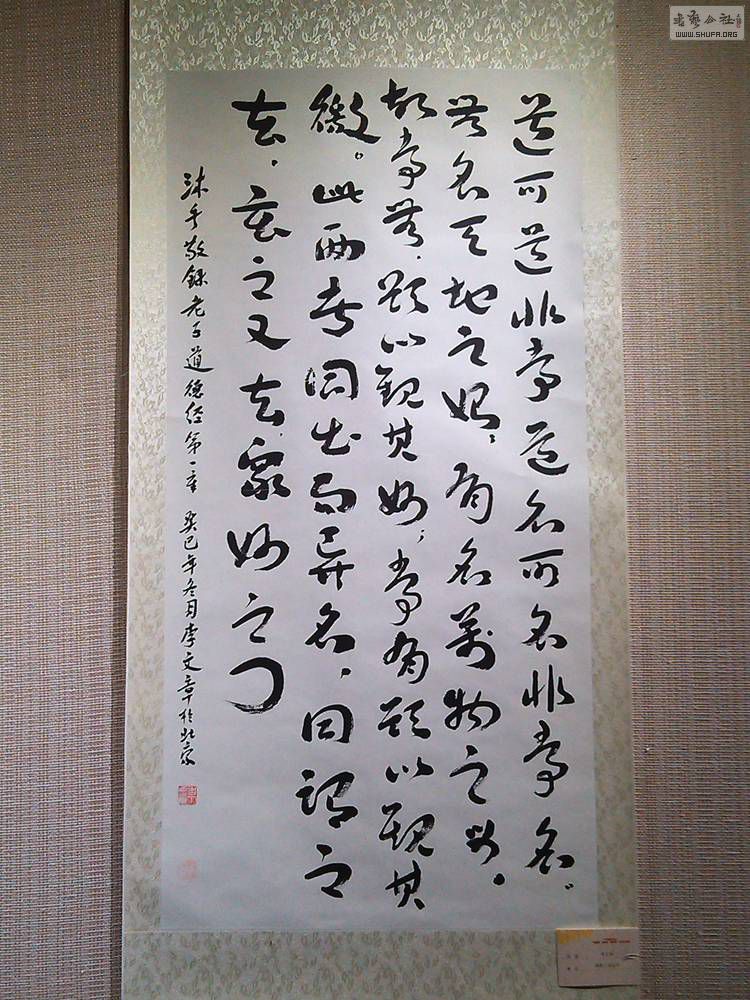 道可道非常道名可名非常名。
无名天地之始，有名万物之母。
故常无，欲以观其妙，常有欲以观其
徼。此两者同出而异名，同谓之
玄，玄之又玄，众妙之门
沐手敬録老子道德经第一章 癸巳年冬月李文章於北京
書藝公社
WWW.SHUFA.ORG